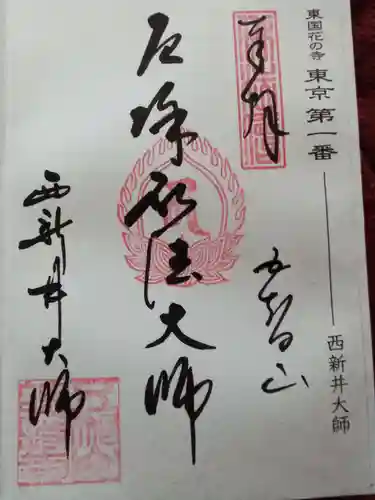 東国花の寺 東京第一番 ―― 西新井大師
奉拝
五智山
厄除弘法大師
西新井大師